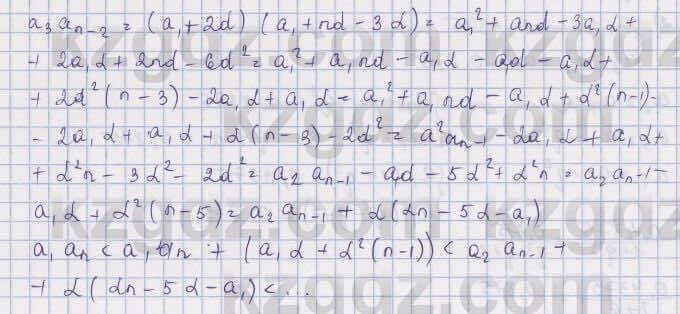 a₃aₙ₋₂ = (a₁+2d) (a₁+nd-3d) = a₁²+and-3a₁d+
+2a₁d+2nd-6d² = a₁²+a₁nd-a₁d-a₁d-a₁d+
+2d²(n-3)-2a₁d+a₁d = a₁²+a₁nd-a₁d+d²(n-1)-
-2a₁d+a₁d+d(n-3)-2d² = a²aₙ₋₁-2a₁d+a₁d+
+d²n-3d²-2d² = a₂aₙ₋₁-a₁d-5d²+d²n = a₂aₙ₋₁-
a₁d+d²(n-5) = a₂aₙ₋₁+d(dn-5d-a₁)
a₁aₙ < a₁aₙ+(a₁d+d²(n-1)) < a₂aₙ₋₁+
+d(dn-5d-a₁) < ...
kzgdz.com